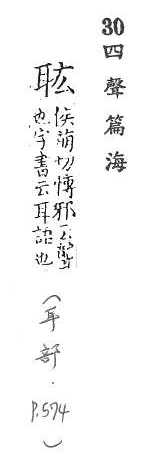 30四聲篇海
耾
侯萌切愽邪云聾
也字書云耳語也
（耳部．P.574）